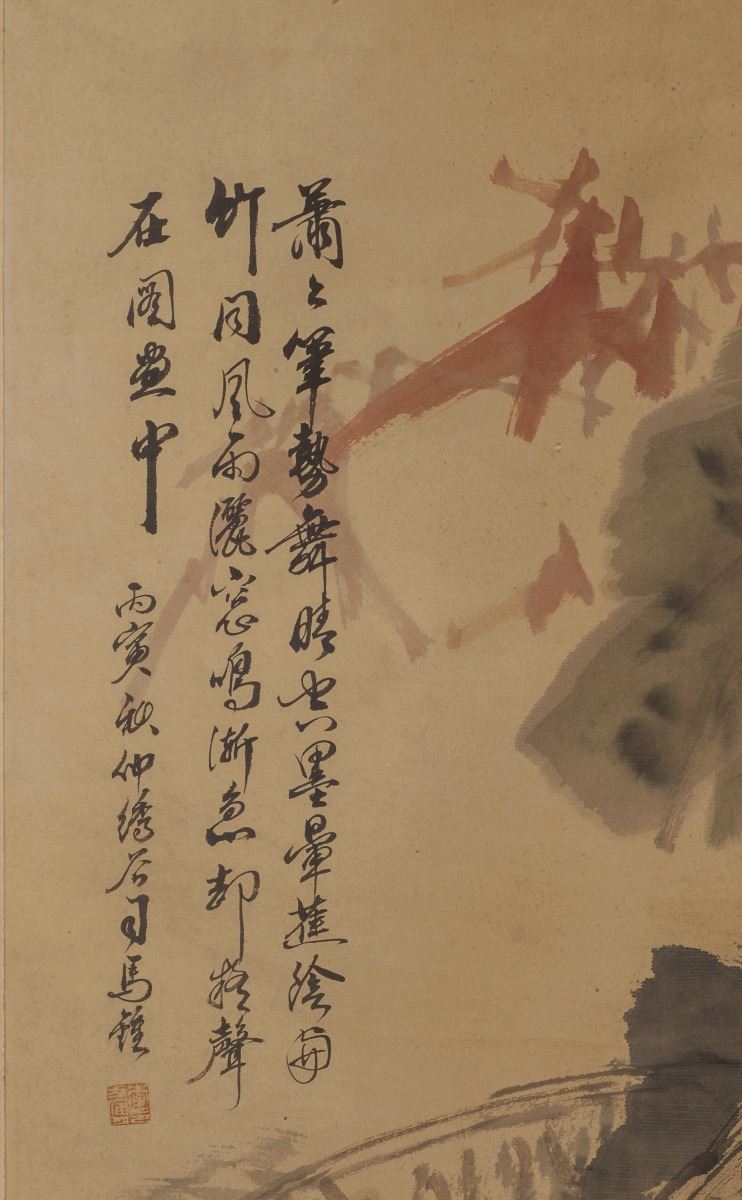 蕭〻筆勢舞晴空墨暈蕉陰與
竹同風雨灑窓鳴漸急却疑聲
在圖畫中
丙寅秋仲繡谷司馬鍾